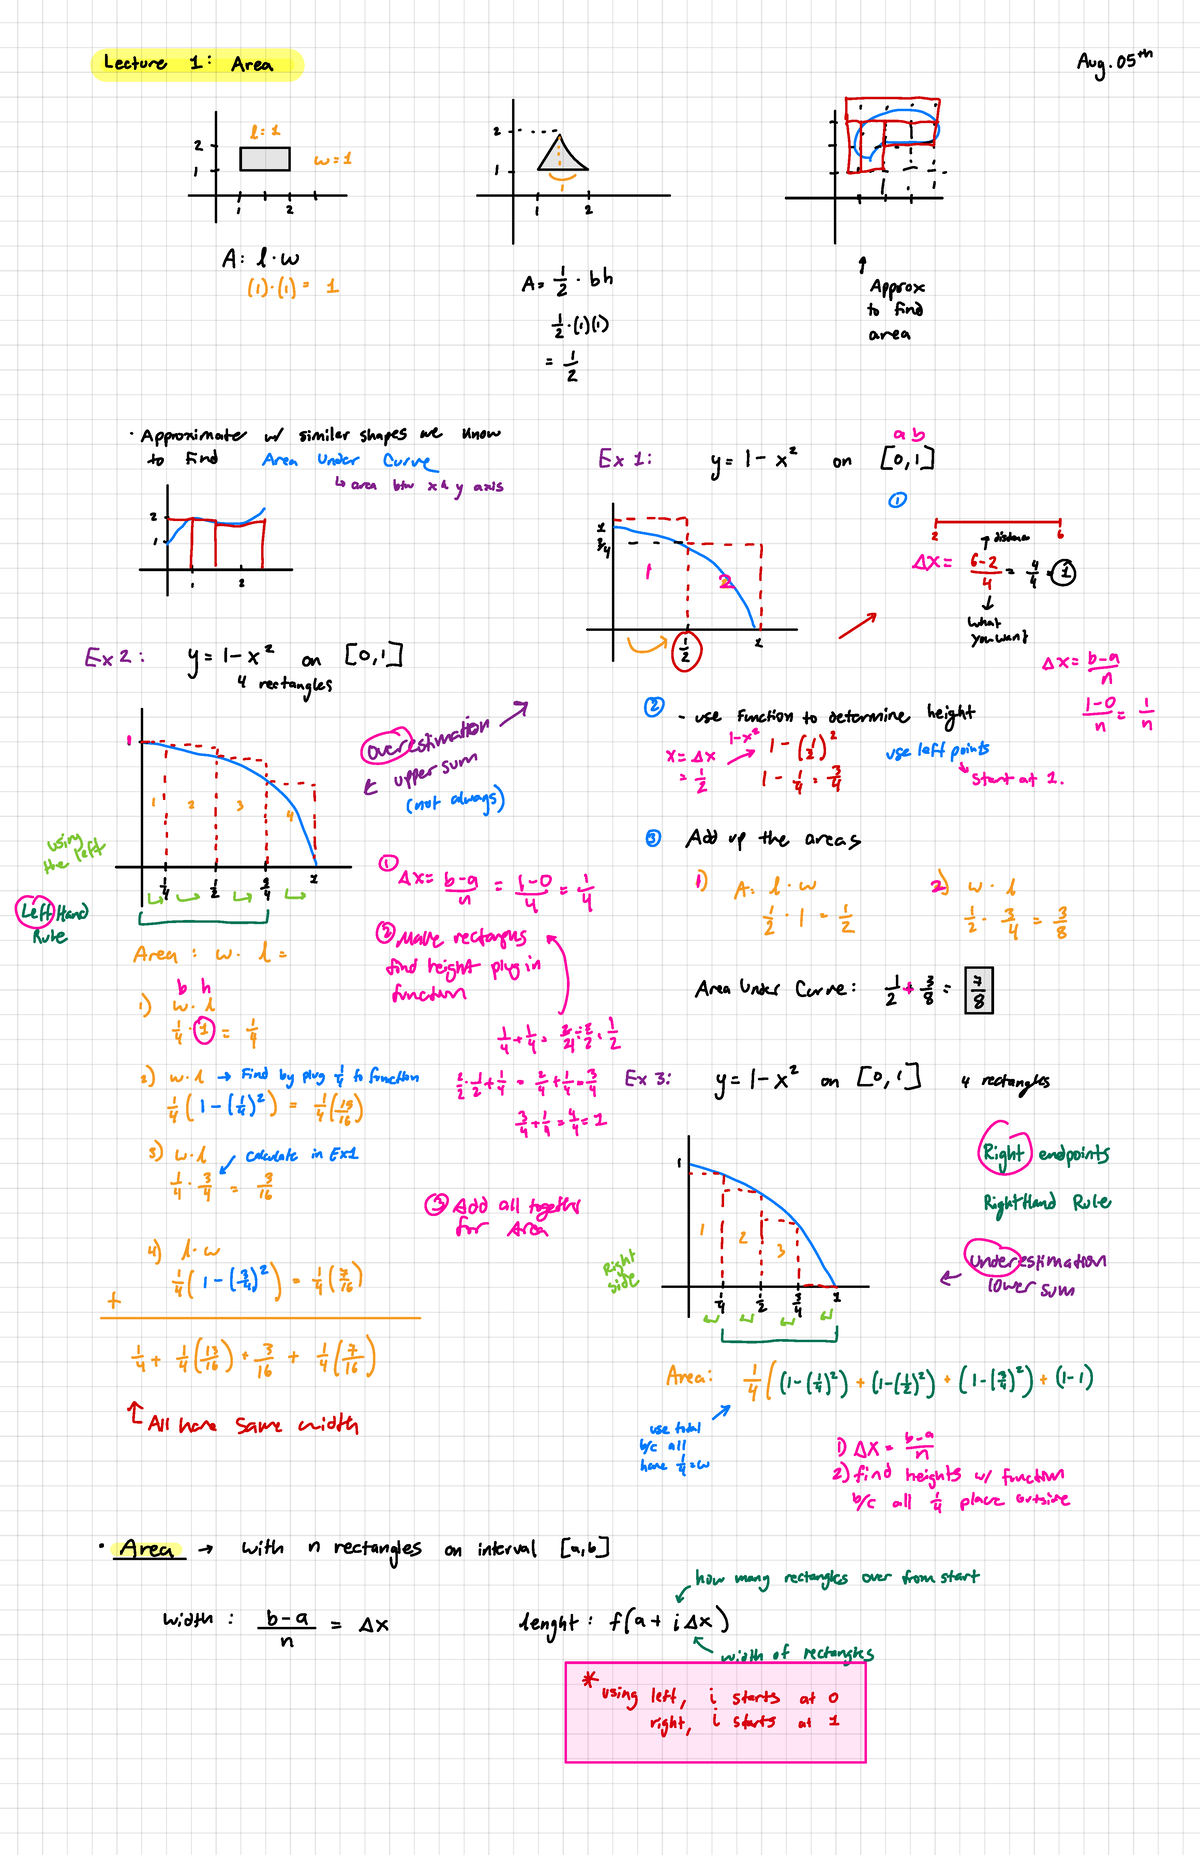 Lecture 1: Area
Aug. 05th
l: 1
w=1
2
1
1
2
A: l·w
(1)·(1) = 1
2
1
1
1
2
A= 1/2 · bh
1/2 ·(1)(1)
= 1/2
Approx
to find
area
· Approximate w/ similar shapes we know
to find Area Under Curve
↳ area btw x & y axis
2
1
1
2
Ex 1: y = 1 - x² on [0,1]
a b
1
3/4
1
2
1/2
1
①
2
6
↑ distance
Δx = (6-2)/4 = 4/4 = 1
↓
what
you want
Δx = (b-a)/n
(1-0)/n = 1/n
② - use function to determine height
x = Δx
= 1/2
1-x²
1 - (1/2)²
1 - 1/4 = 3/4
use left points
↳ start at 1.
③ Add up the areas
1) A: l·w
1/2 · 1 = 1/2
2) w·l
1/2 · 3/4 = 3/8
Area Under Curve: 1/2 + 3/8 = 7/8
Ex 2: y = 1 - x² on [0,1]
4 rectangles
1
1
2
3
4
1/4
1/2
3/4
1
overestimation
upper sum
(not always)
using
the left
Left Hand
Rule
① Δx = (b-a)/n = (1-0)/4 = 1/4
② Make rectangles
find height plug in
function
1/4 + 1/4 = 2/4 ÷ 2/2 = 1/2
2/2 · 1/2 + 1/4 = 2/4 + 1/4 = 3/4
3/4 + 1/4 = 4/4 = 1
③ Add all together
for Area
Area : w· l =
b h
1) w·l
1/4 · 1 = 1/4
2) w·l → Find by plug 1/4 to function
1/4 (1-(1/4)²) = 1/4 (15/16)
3) w·l
calculate in Ex1
1/4 · 3/4 = 3/16
4) l·w
1/4 (1-(3/4)²) = 1/4 (7/16)
+
1/4 + 1/4 (13/16) + 3/16 + 1/4 (7/16)
All have same width
Ex 3: y = 1 - x² on [0,1] 4 rectangles
1
1
2
3
1/4
1/2
3/4
1
Right endpoints
Right Hand Rule
Underestimation
lower sum
Right
side
Area: 1/4 ((1-(1/4)²) + (1-(1/2)²) + (1-(3/4)²) + (1-1)
use total
b/c all
have 1/4=w
1) Δx = (b-a)/n
2) find heights w/ function
b/c all 1/4 place outside
· Area → with n rectangles on interval [a,b]
how many rectangles over from start
width : (b-a)/n = Δx
lenght : f(a + iΔx)
width of rectangles
* using left, i starts at 0
right, i starts at 1